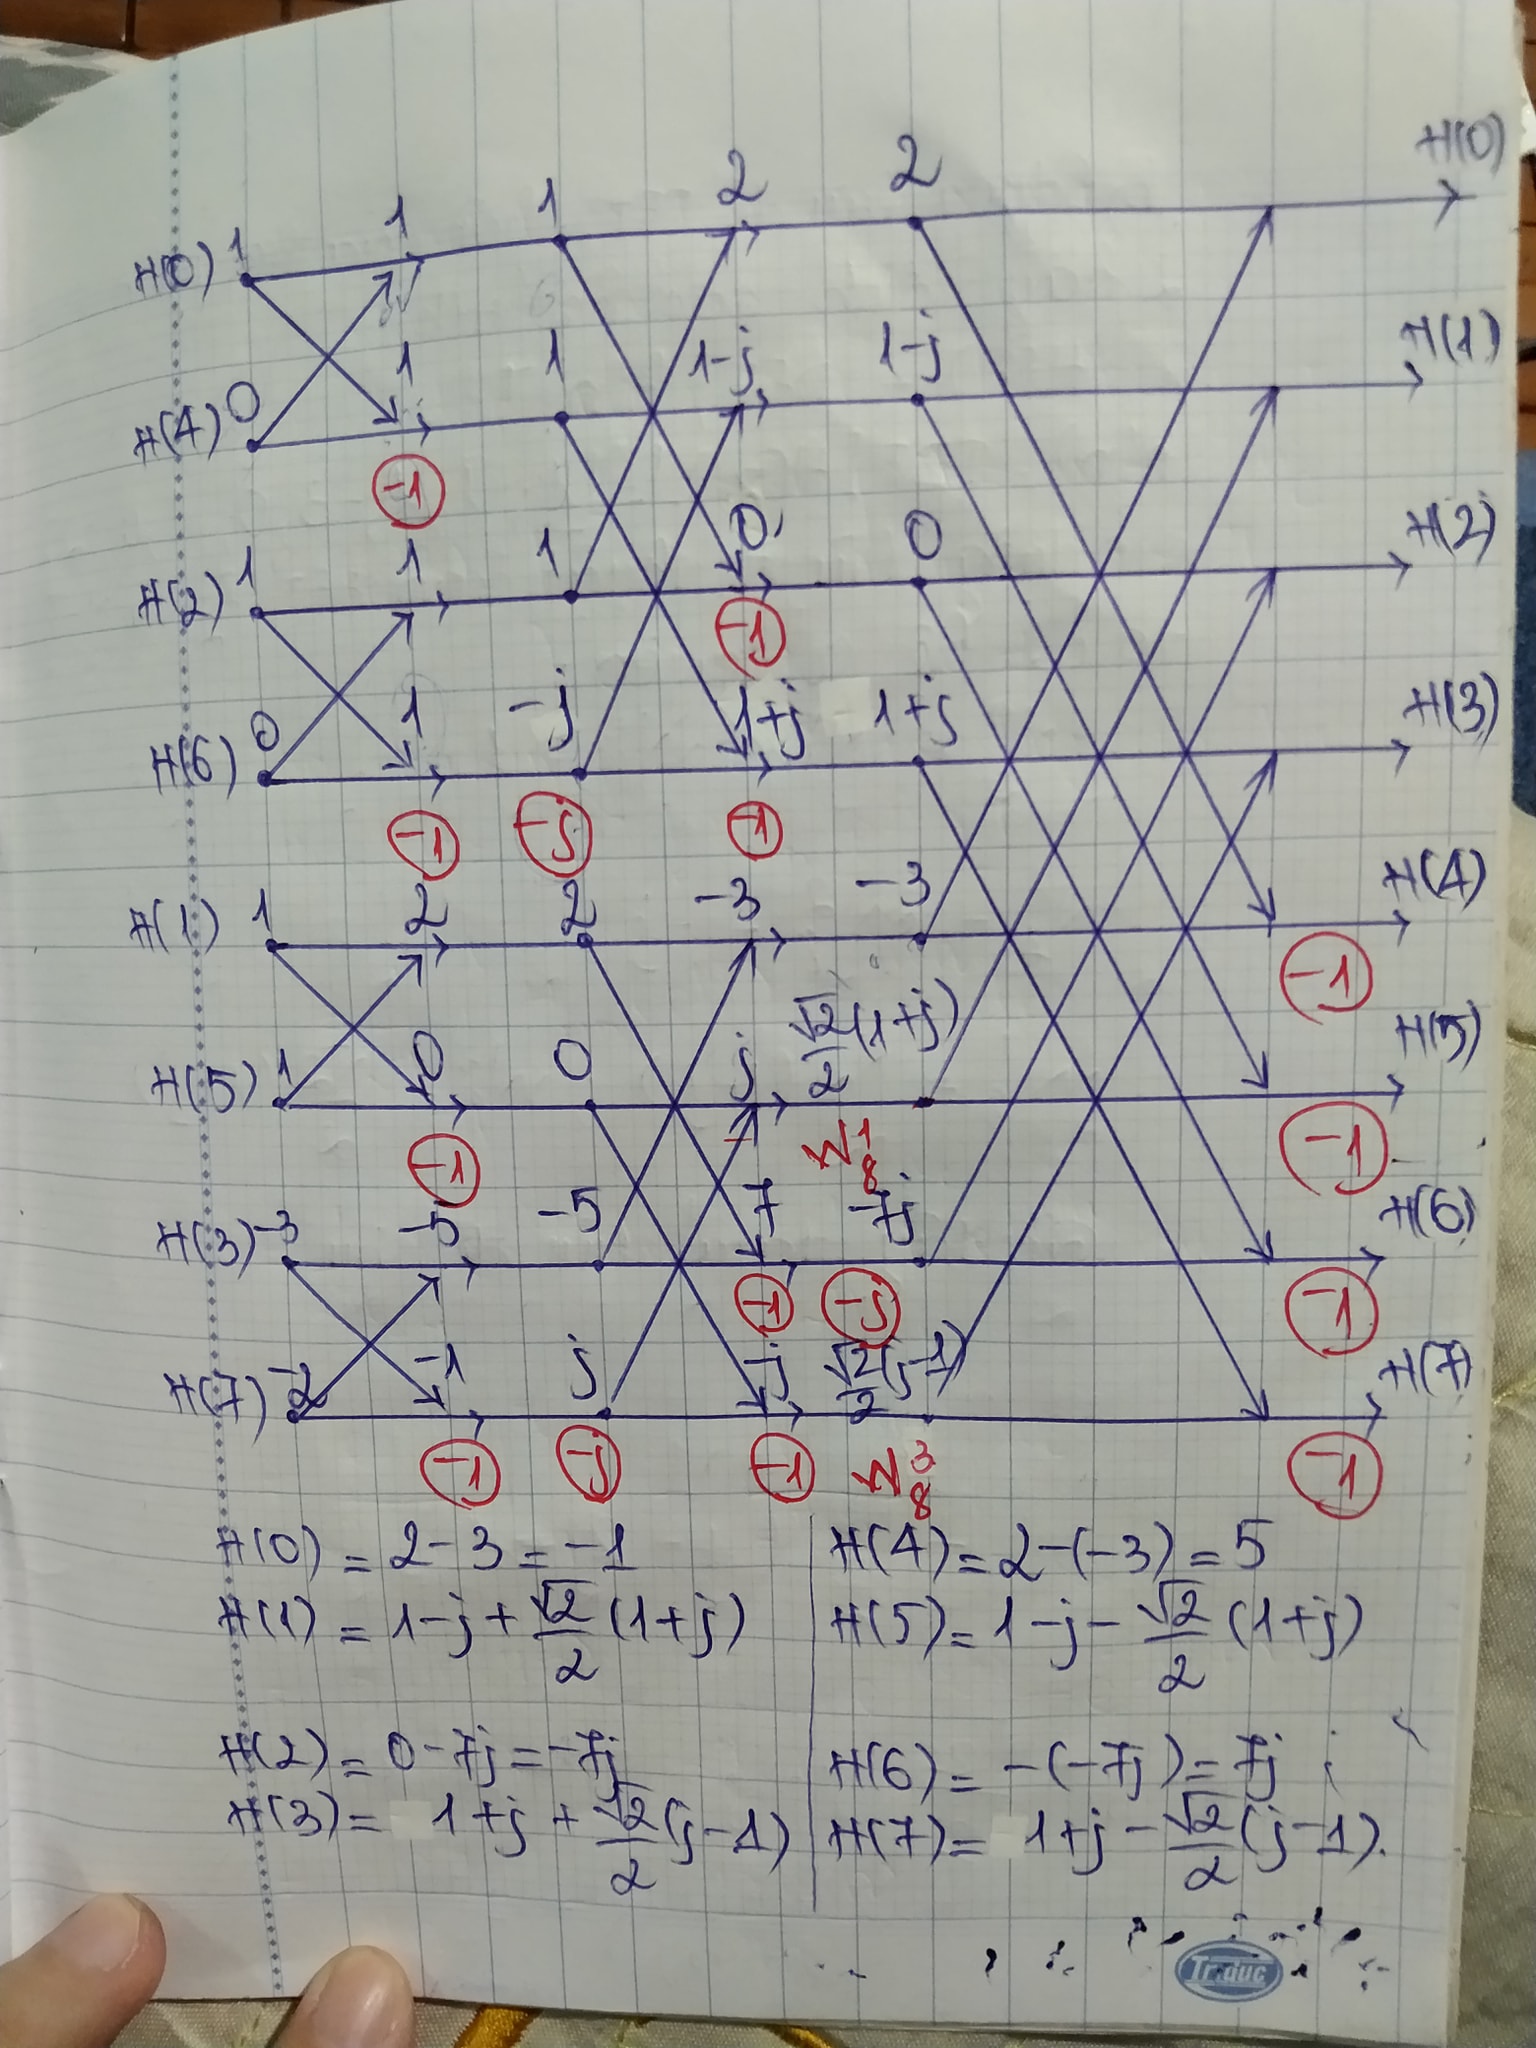 2 2 H(0)
H(0) 1 1 1
1-j 1-j H(1)
H(4) 0 1 1
-1
0 0 H(2)
H(2) 1 1 1
-1
H(6) 0 1 -j 1+j 1+j H(3)
-1 -j -1
H(1) 1 2 2 -3 -3 H(4)
-1
H(5) 1 0 0 j √2/2 (1+j) H(5)
-1 W₈¹ -1
H(3) -3 -5 -5 7 -7j H(6)
-1 -j -1
H(7) -2 -1 j -j √2/2 (j-1) H(7)
-1 -j -1 W₈³ -1
H(0) = 2-3 = -1
H(1) = 1-j + √2/2 (1+j)
H(2) = 0-7j = -7j
H(3) = 1+j + √2/2 (j-1)
H(4) = 2-(-3) = 5
H(5) = 1-j - √2/2 (1+j)
H(6) = -(-7j) = 7j
H(7) = 1+j - √2/2 (j-1).